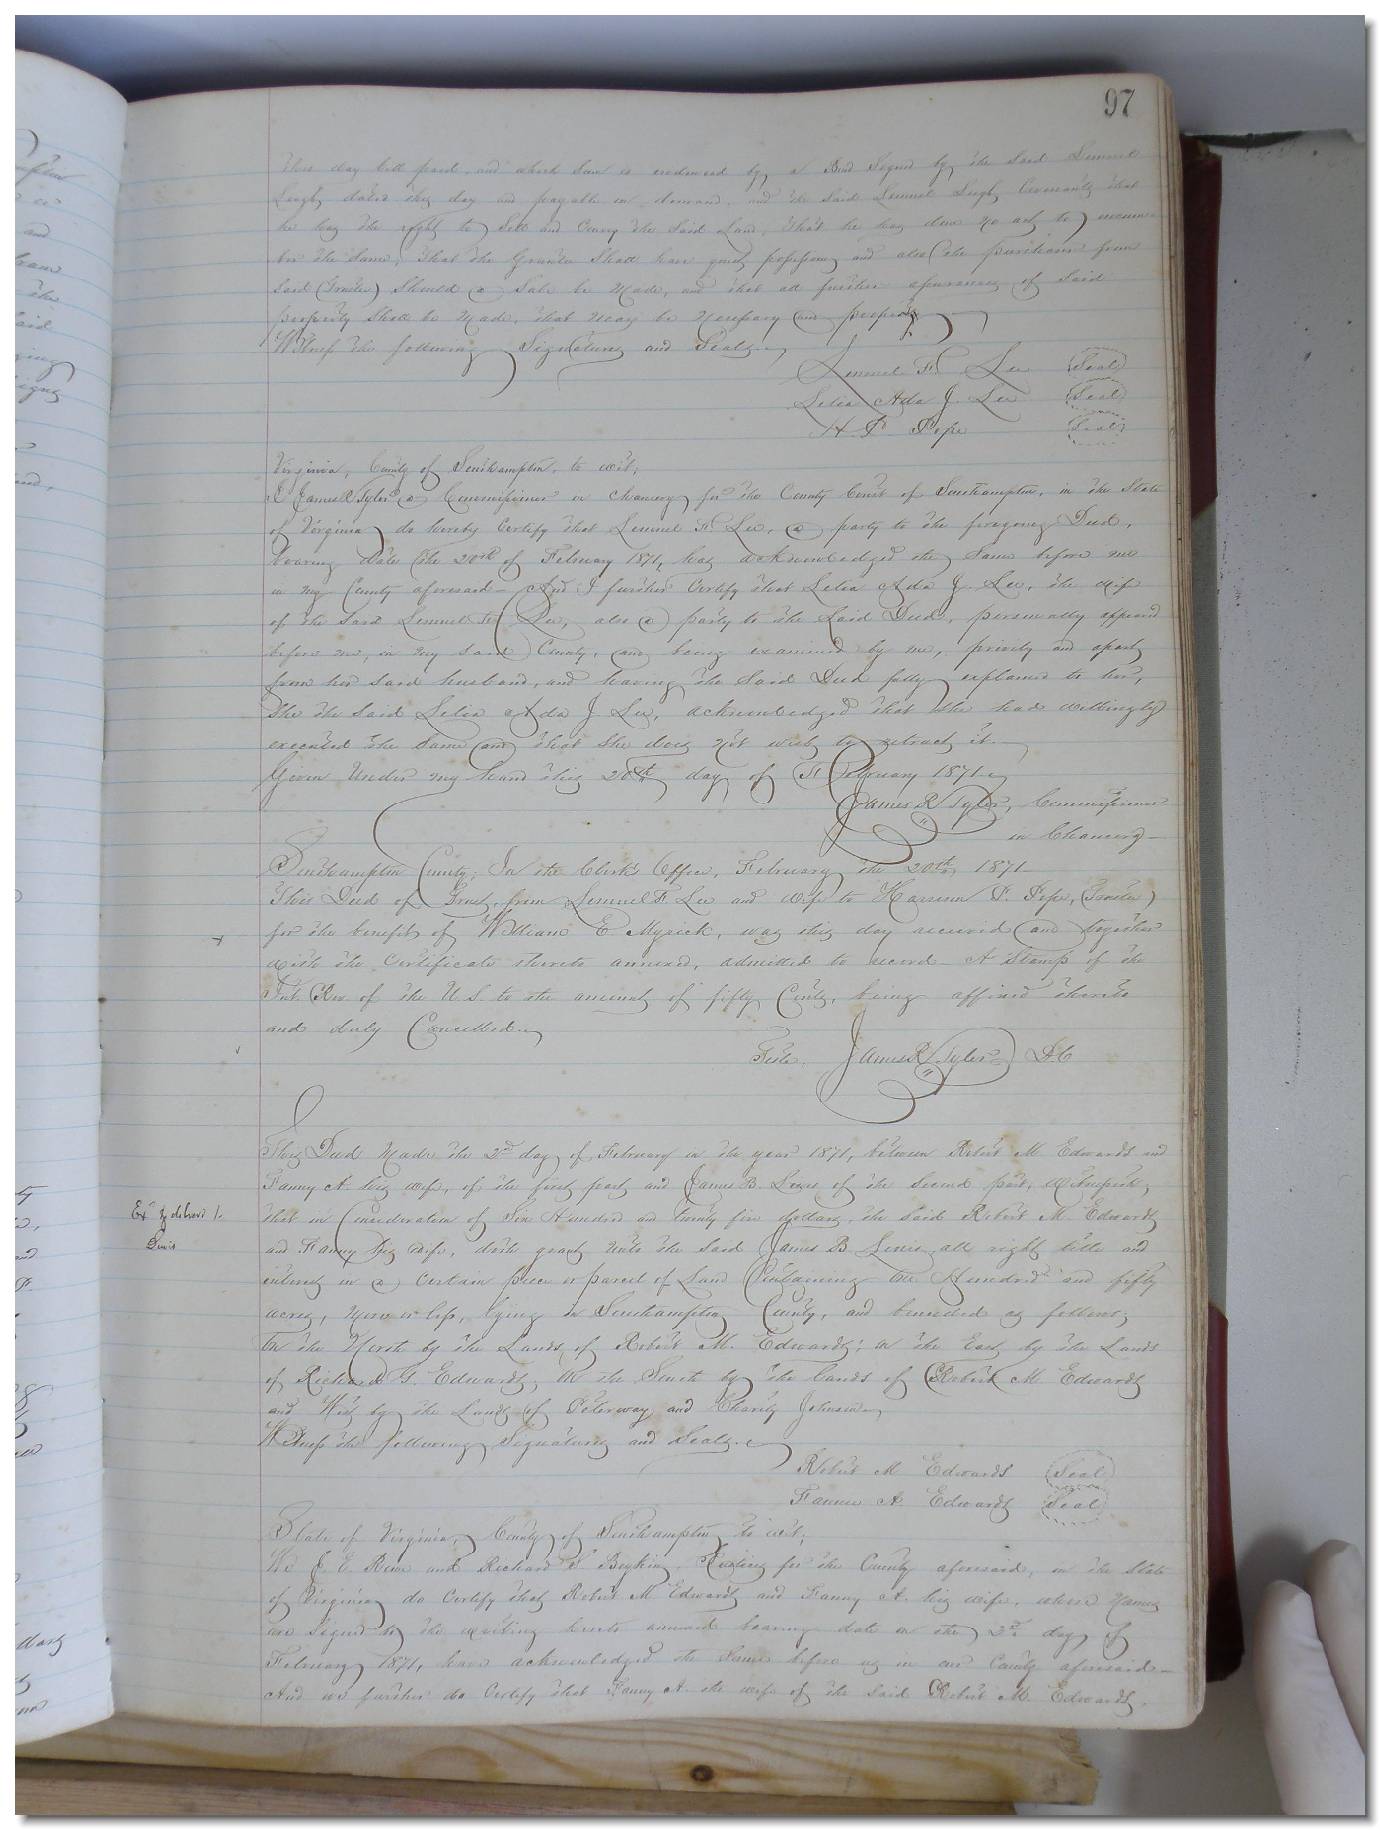 97
this day bill paid, and which sum is evidenced by a Bond Signed by the said Lemuel
dated this day and payable on demand, and the said Lemuel Covenants that
he has the right to Sell and Convey the said Land, that he has done no act to encum
ber the same, that the Grantee Shall have quiet possession, and also the purchaser from
said (Trustee) Should a Sale be Made, and that all further assurances of Said
property Shall be Made, that may be Necessary and proper,
Witness the following Signatures and Seals.
Lemuel F. Lee (Seal)
Letia Ada J. Lee (Seal)
H. P. Pope (Seal)
Virginia, County of Southampton, to wit;
I James R Tyler a Commissioner in Chancery for the County Court of Southampton, in the State
of Virginia do hereby Certify that Lemuel F. Lee, a party to the foregoing Deed,
bearing date the 20th of February 1871, has acknowledged the Same before me
in my County aforesaid - And I further Certify that Letia Ada J. Lee, the wife
of the said Lemuel F. Lee, also a party to the Said Deed, personally appeared
before me, in my said County, and being examined by me, privily and apart
from her said husband, and having the Said Deed fully explained to her,
She the said Letia Ada J Lee, acknowledged that She had willingly
executed the Same and that She does not wish to retract it.
Given Under my hand this 20th day of February 1871
James R Tyler, Commissioner
in Chancery -
Southampton County; In the Clerk's Office, February the 20th, 1871 -
This Deed of Trust, from Lemuel F. Lee and Wife to Harrison P. Pope, (Trustee)
for the benefit of William E Myrick, was this day received and together
with the Certificate thereto annexed, admitted to record - A Stamp of the
Int. Rev of the U.S. to the amount of fifty Cents, being affixed thereto
and duly Cancelled.
Teste. James R Tyler D.C
This Deed Made the 2nd day of February in the year 1871, between Robert M Edwards and
Fanny A. his wife, of the first part and James B. Lewis of the Second part, Witnesseth;
Exd & delivered J.
Lewis
that in Consideration of Six Hundred and twenty five dollars, the said Robert M. Edwards
and Fanny his wife, doth grant unto the said James B Lewis, all right title and
interest in a Certain piece or parcel of Land Containing One Hundred and fifty
acres, more or less, lying in Southampton County, and bounded as follows;
On the North by the Lands of Robert M. Edwards; on the East by the Lands
of Richard G. Edwards; on the South by the Lands of Robert M Edwards
and West by the Lands of Peterway and Charity Johnson,
Witness the following Signatures and Seals.
Robert M Edwards (Seal)
Fannie A. Edwards (Seal)
State of Virginia, County of Southampton to wit;
We J. E. and Richard S Boykin, Justices for the County aforesaid, in the State
of Virginia do Certify that Robert M Edwards and Fanny A. his wife, whose Names
are Signed to the writing hereto annexed bearing date on the 2nd day of
February 1871, have acknowledged the Same before us in our County aforesaid -
And we further do Certify that Fanny A. the wife of the said Robert M. Edwards.